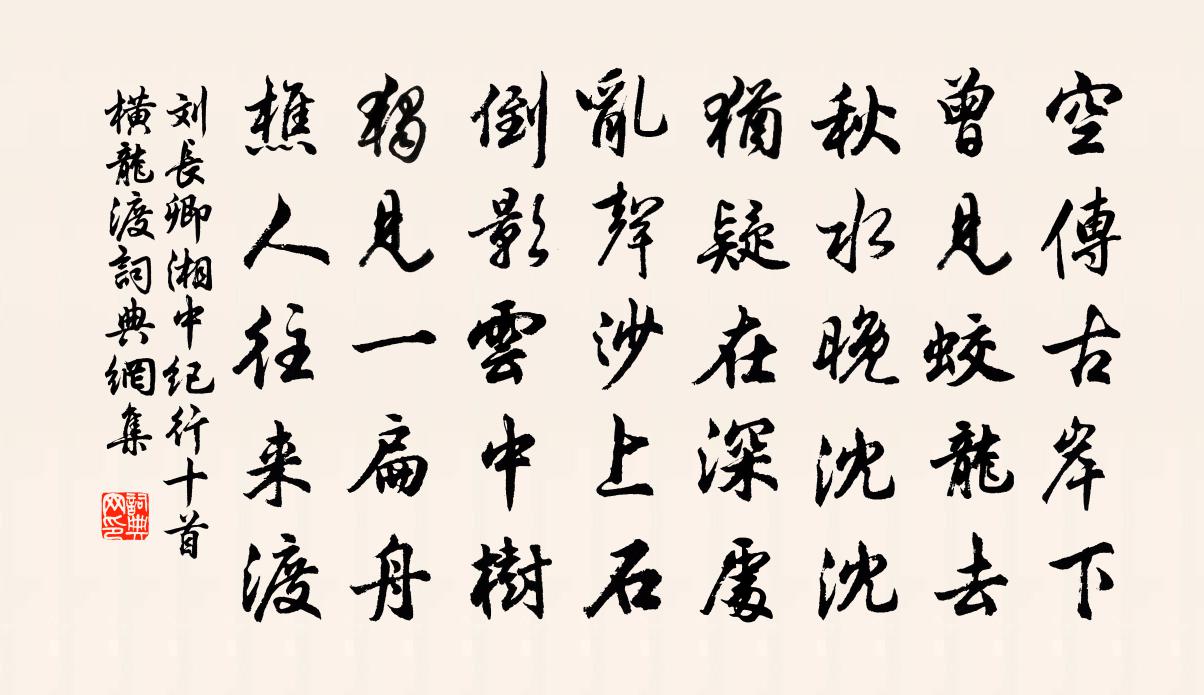 空傳古岸下
曾見蛟龍去
秋水晚沈沈
猶疑在深處
亂聲沙上石
倒影雲中樹
獨見一扁舟
樵人往来渡
刘長卿湘中纪行十首
橫龍渡詞典網集
詞典网印